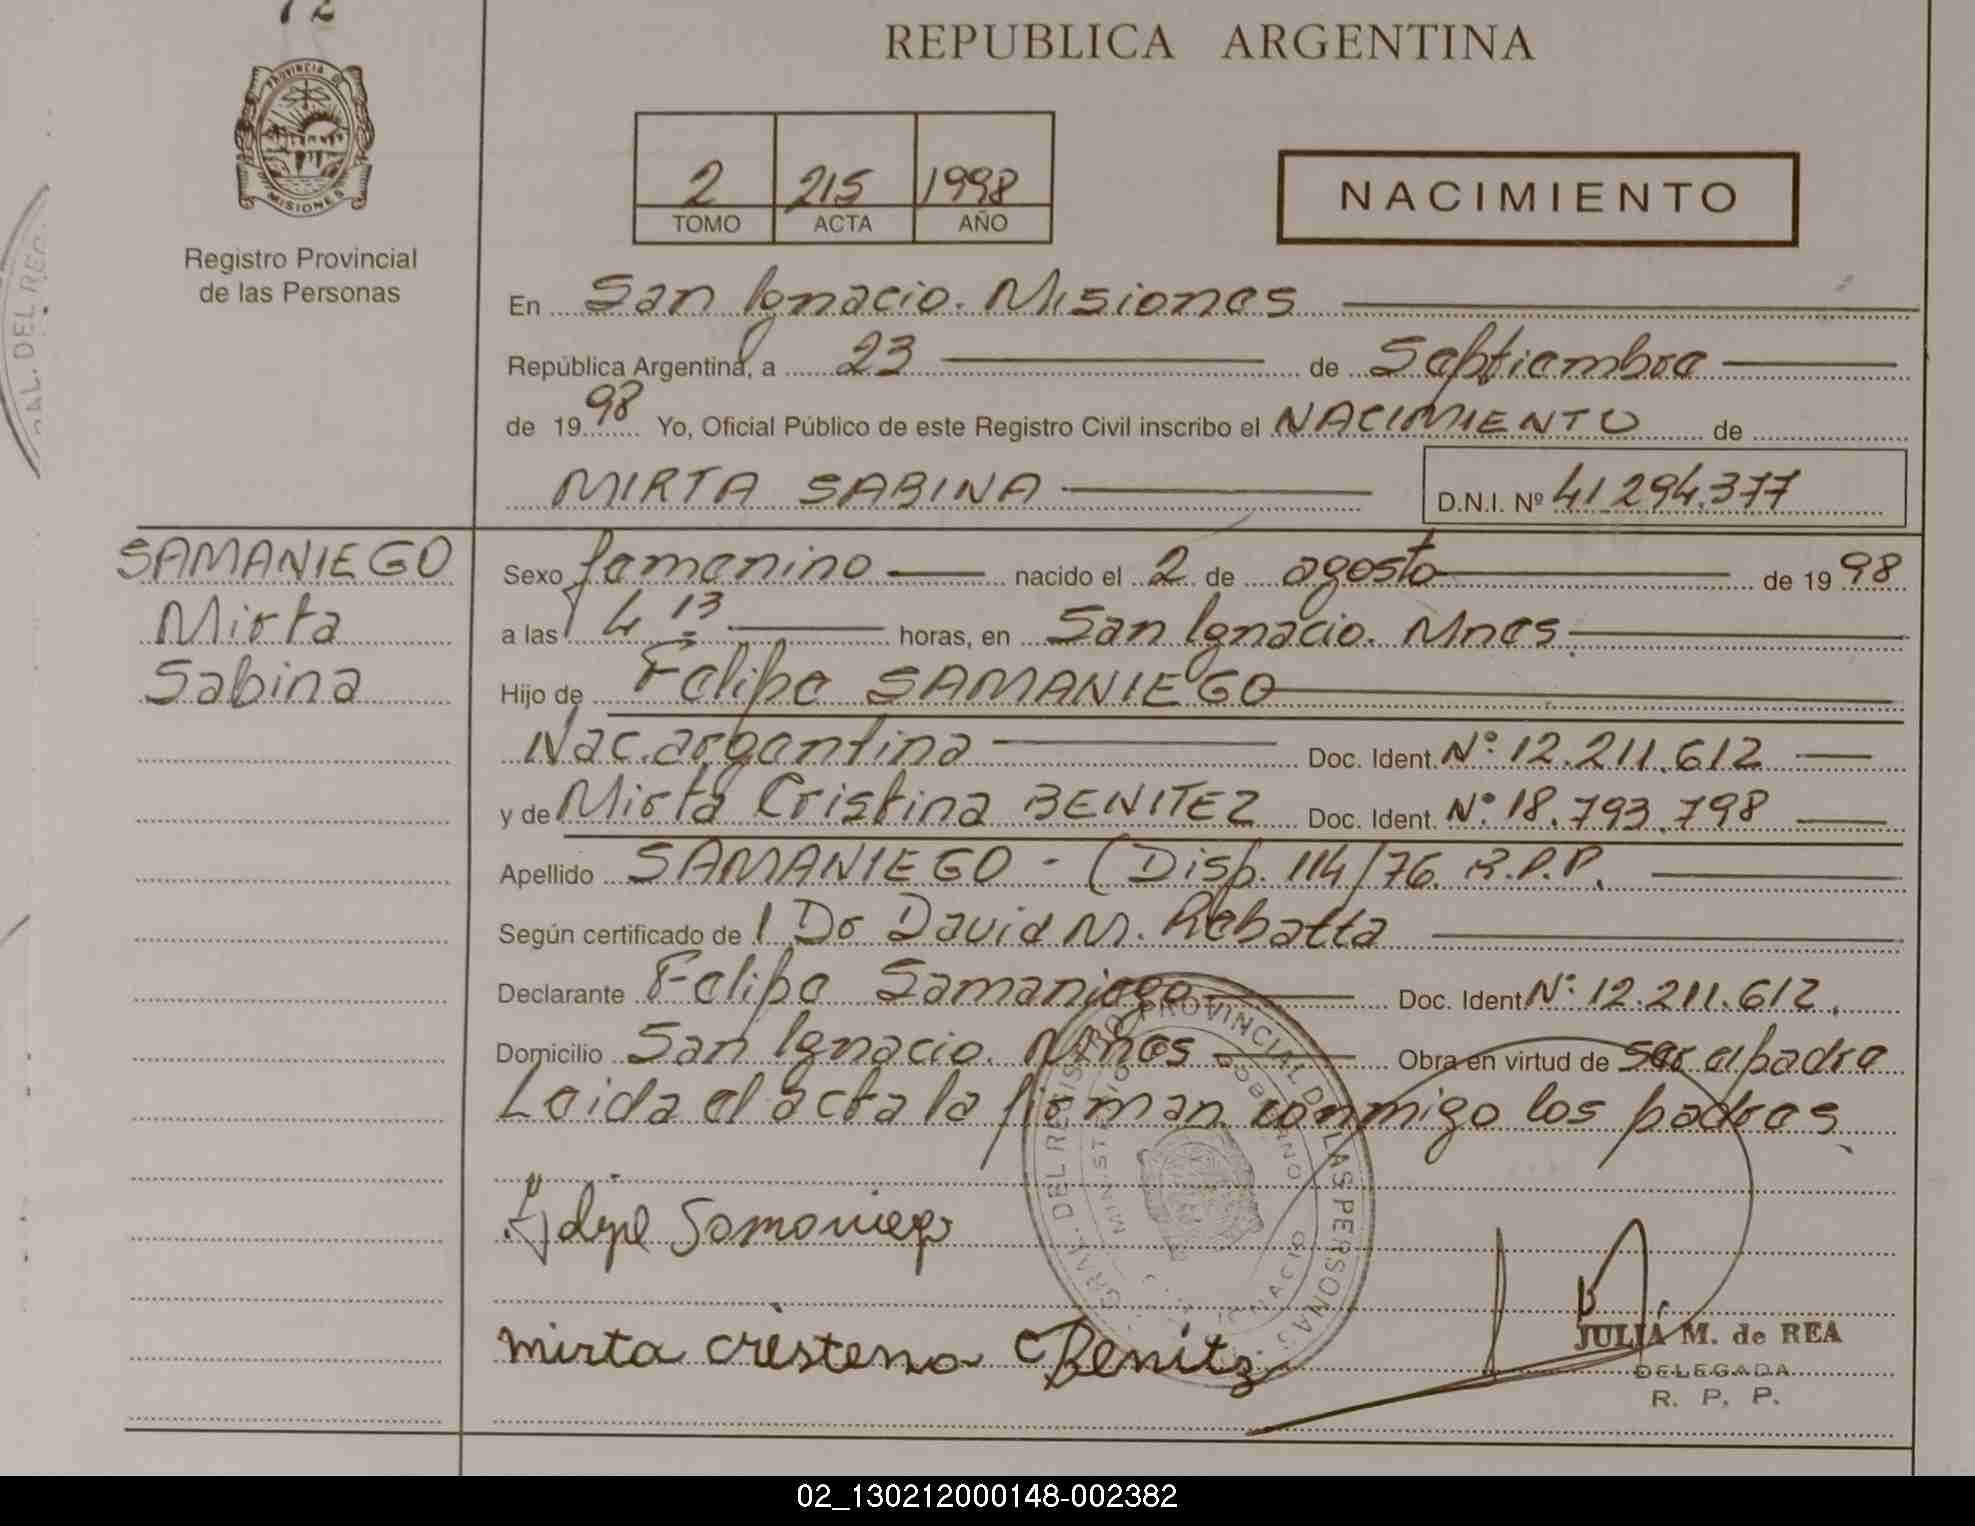 12
REPUBLICA ARGENTINA
PROVINCIA DE
MISIONES
Registro Provincial
de las Personas
2 215 1998
TOMO ACTA AÑO
NACIMIENTO
En San Ignacio. Misiones
República Argentina, a 23 de Septiembre
de 1998 Yo, Oficial Público de este Registro Civil inscribo el NACIMIENTO de
MIRTA SABINA D.N.I. Nº 41.294.377
SAMANIEGO
Mirta
Sabina
Sexo femenino nacido el 2 de agosto de 1998
a las 4 13 horas, en San Ignacio. Mnes.
Hijo de Felipe SAMANIEGO
Nac. argentina Doc. Ident. Nº 12.211.612
y de Mirta Cristina BENITEZ Doc. Ident. Nº 18.793.798
Apellido SAMANIEGO - (Disp. 114/76. R.P.P.
Según certificado de 1 Dr David M. Rebatta
Declarante Felipe Samaniego Doc. Ident. Nº 12.211.612.
Domicilio San Ignacio. Mnes Obra en virtud de ser el padre
Leida el acta la firman conmigo los padres.
GRAL. DEL REGISTRO PROVINCIAL DE LAS PERSONAS
MINISTERIO GOBIERNO
Felipe Samaniego
mirta cristena Benitz
JULIA M. de REA
DELEGADA
R. P. P.
02_130212000148-002382